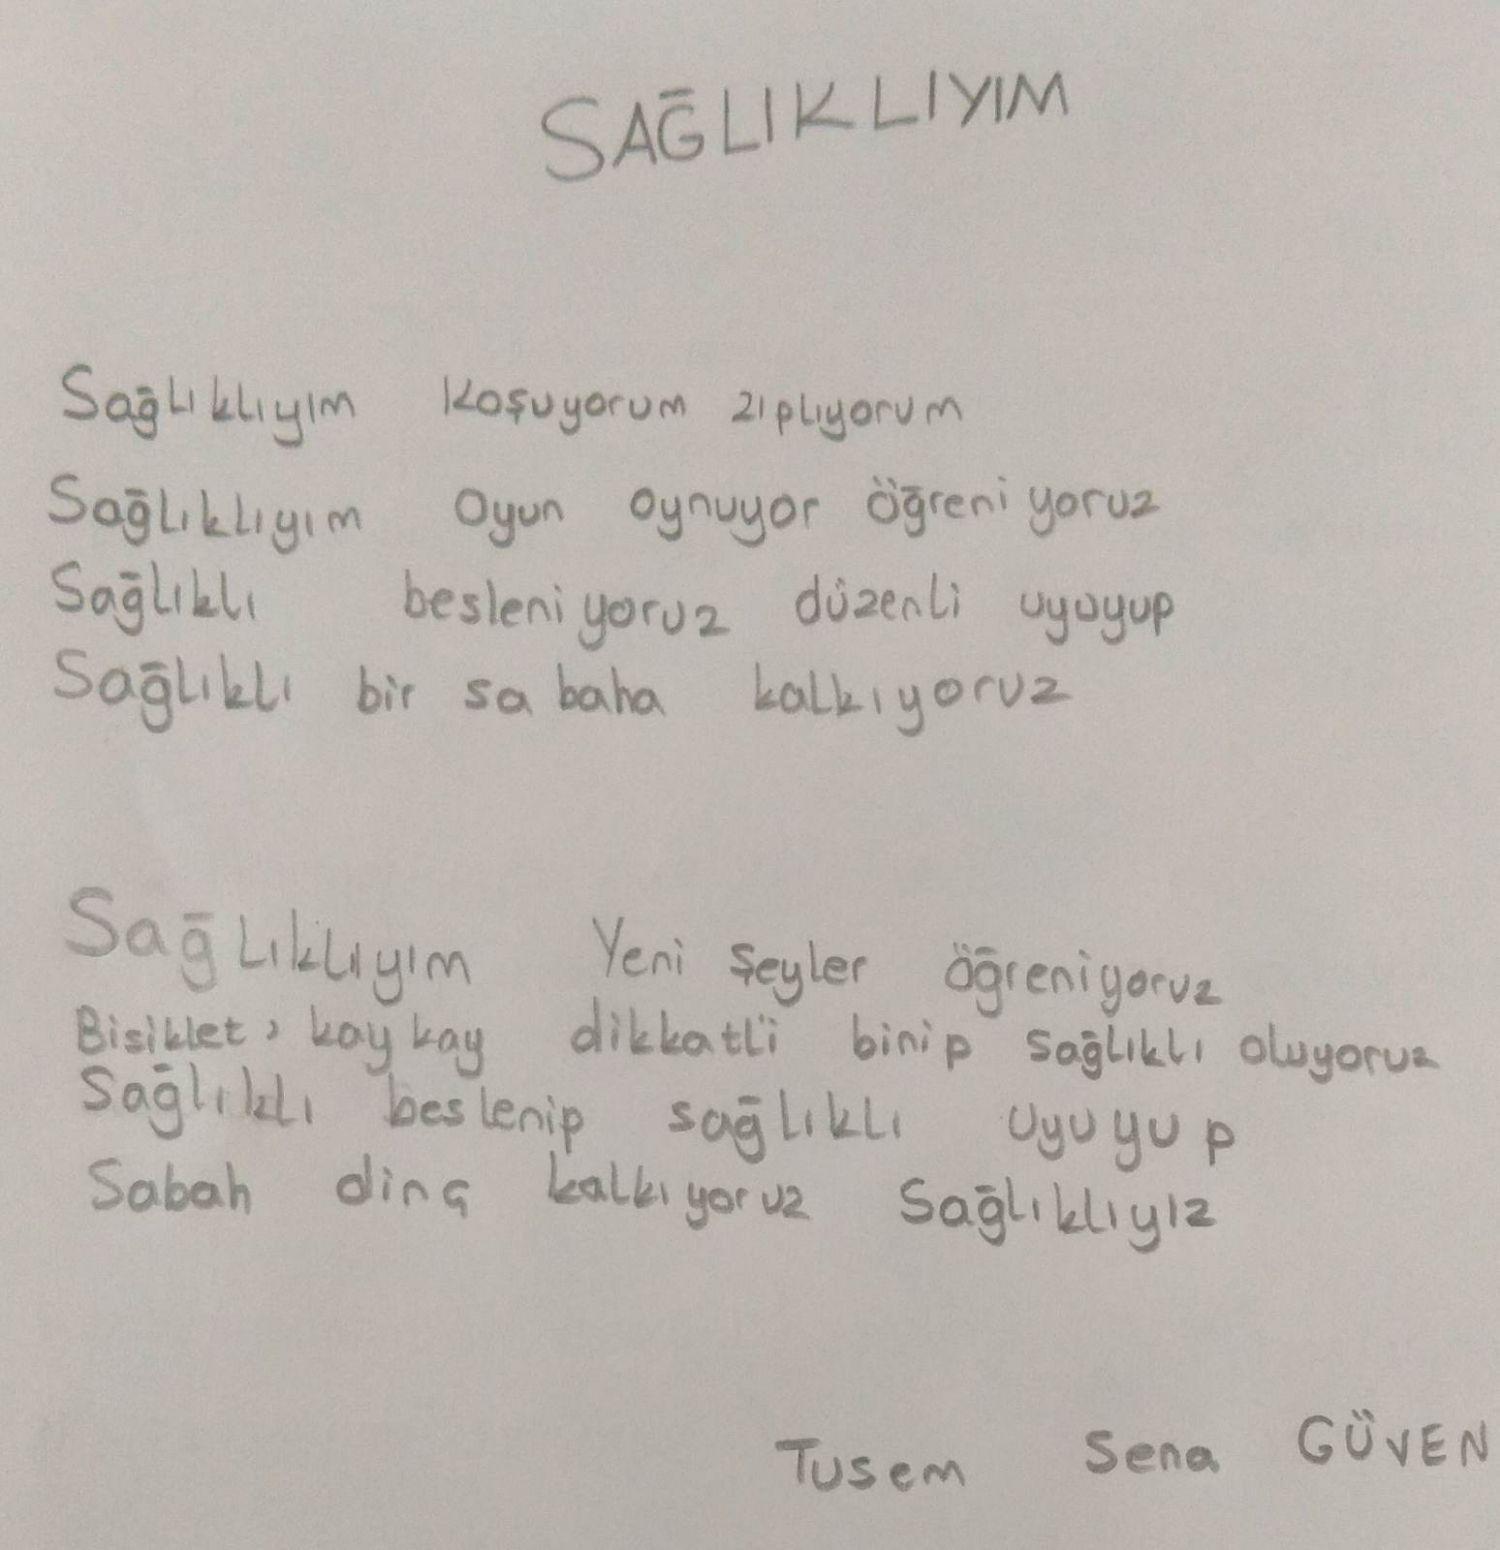 SAĞLIKLIYIM
Sağlıklıyım koşuyorum zıplıyorum
Sağlıklıyım Oyun oynuyor öğreniyoruz
Sağlıklı besleniyoruz düzenli uyuyup
Sağlıklı bir sabaha kalkıyoruz
Sağlıklıyım Yeni şeyler öğreniyoruz
Bisiklet, kaykay dikkatli binip sağlıklı oluyoruz
Sağlıklı beslenip sağlıklı uyuyup
Sabah dinç kalkıyoruz Sağlıklıyız
Tusem Sena GÜVEN